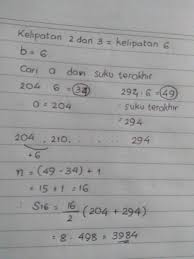 Kelipatan 2 dan 3 = kelipatan 6
b = 6
Cari a dan suku terakhir
204 : 6 = 34 294 : 6 = 49
a = 204 : suku terakhir
= 294
204, 210, ........ 294
+6
n = (49 - 34) + 1
= 15 + 1 = 16
∴ S16 = 16/2 (204 + 294)
= 8 . 498 = 3984